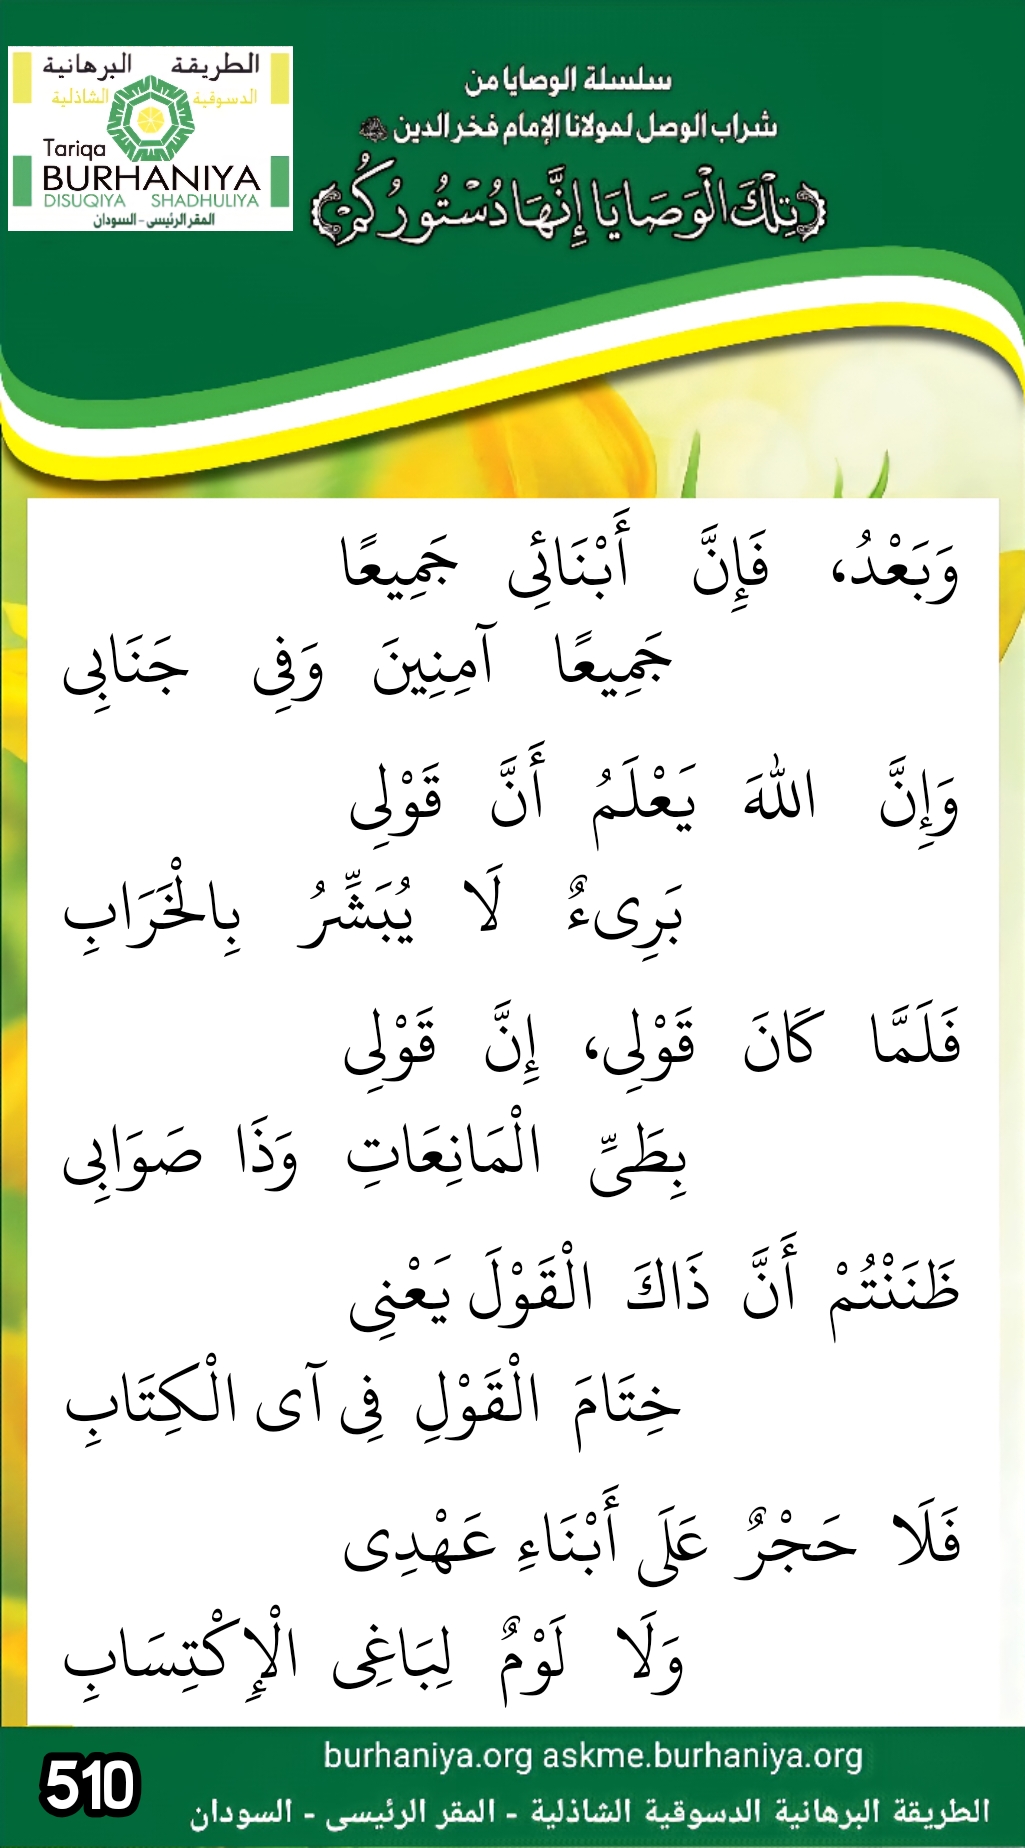 الطريقة البرهانية
الدسوقية الشاذلية
Tariqa
BURHANIYA
DISUQIYA SHADHULIYA
المقر الرئيسى - السودان
سلسلة الوصايا من
شراب الوصل لمولانا الإمام فخر الدين
تِلْكَ الْوَصَايَا إِنَّهَا دُسْتُورُكُمْ
وَبَعْدُ، فَإِنَّ أَبْنَائِى جَمِيعًا
جَمِيعًا آمِنِينَ وَفِى جَنَابِى
وَإِنَّ اللهَ يَعْلَمُ أَنَّ قَوْلِى
بَرِىءٌ لَا يُبَشِّرُ بِالْخَرَابِ
فَلَمَّا كَانَ قَوْلِى، إِنَّ قَوْلِى
بِطَىِّ الْمَانِعَاتِ وَذَا صَوَابِى
ظَنَنْتُمْ أَنَّ ذَاكَ الْقَوْلَ يَعْنِى
خِتَامَ الْقَوْلِ فِى آى الْكِتَابِ
فَلَا حَجْرٌ عَلَى أَبْنَاءِ عَهْدِى
وَلَا لَوْمٌ لِبَاغِى الْإِكْتِسَابِ
burhaniya.org askme.burhaniya.org
510
الطريقة البرهانية الدسوقية الشاذلية - المقر الرئيسى - السودان